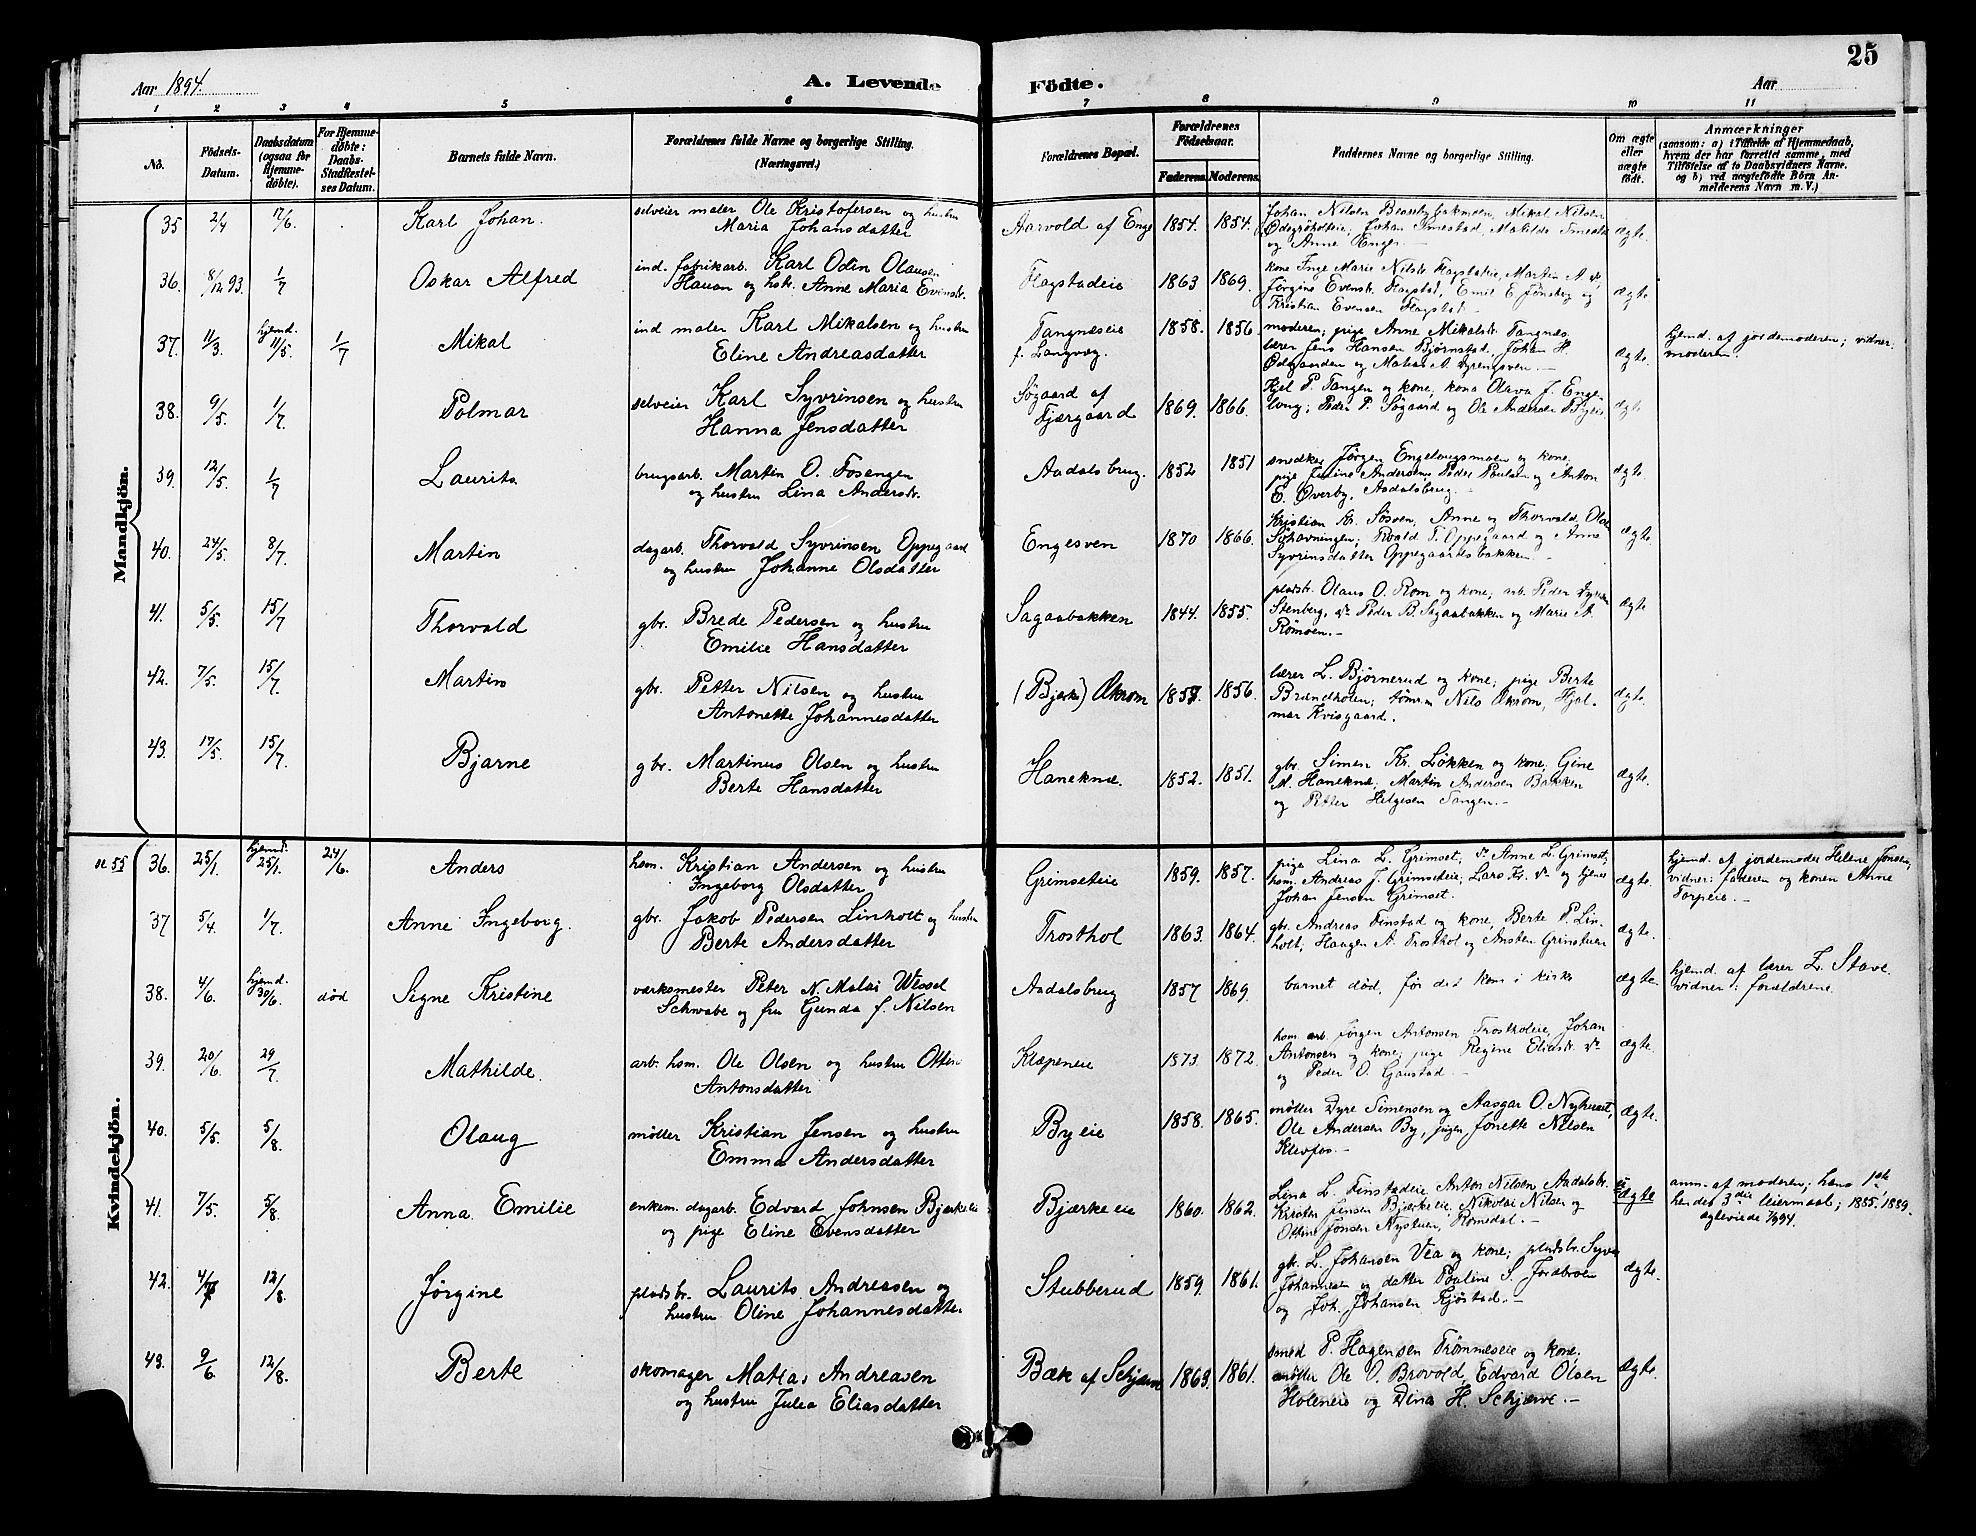 25
Aar 1894.
A. Levende Födte.
Aar
1 2 3 4 5 6 7 8 9 10 11
No.
Födsels-Datum.
Daabsdatum (ogsaa for Hjemme-döbte).
For Hjemme-döbte: Daabs-Stadfestel-ses Datum.
Barnets fulde Navn.
Forældrenes fulde Navne og borgerlige Stilling. (Næringsvei.)
Forældrenes Bopæl.
Forældrenes Födselsaar.
Faderens. Moderens.
Faddernes Navne og borgerlige Stilling.
Om ægte eller uægte födt.
Anmærkninger
(saasom: a) i Tilfælde af Hjemmedaab, hvem der har forrettet samme, med Tilföielse af to Daabsvidners Navne, og b) ved uægtefödte Börn An-melderens Navn m. V.)
Mandkjön.
35 2/4 17/6. Karl Johan. selveier maler Ole Kristofersen og hustru
Maria Johansdatter
Aarvold af Enge 1854. 1854. Johan Nilsen, Mikal Nilsen
Johan Imestad, Matilde Imestad
og Anne Enger. ægte.
36. 8/12 93. 1/7 Oskar Alfred ind. fabrikarb. Karl Odin Olausen
Hauan og hst. Anne Maria Evensdr.
Flagstadeie 1863 1869. kone Inge Marie Nilsdr. Flagstadeie, Martin A. do,
Jørgine Evensdr. Flagstad, Emil E. Jønsberg og
Kristian Evensen Flagstad. ægte
37. 11/3. hjemd. 11/5. 1/7 Mikal ind maler Karl Mikalsen og hustru
Eline Andreasdatter
Tangnæseie
f. Langvæg.
1858. 1856. moderen; pige Anne Mikalsdr. Tangnæs
lærer Jens Hansen Bjørnstad, Johan H.
Ødegaarden og Matias A. ægte.
hjemd. af jordemoderen; vidner:
moderen
38. 9/5. 1/7. Polmar selveier Karl Syvrinsen og hustru
Hanna Jensdatter
Søgaard af
Fjærgaard
1869. 1866. Hjel P. Tangen og kone, kone Olava J. Enge
lang; Peder P. Søgaard og Ole Andersen ægte
39. 12/5. 1/7 Laurits brugsarb. Martin O. Fosengen
og hustru Lina Andersdr.
Aadalsbrug. 1852 1851 snedker Jørgen Engelaugsmoen og kone,
pige Juline Andersen, Peder Paulsen og Anton
E. Øverby, Aadalsbrug. ægte.
40. 24/5. 8/7. Martin dagarb. Thorvald Syvrinsen Oppegaard
og hustru Johanne Olsdatter
Engesven 1870 1866. Kristian Kr. Søsven, Anne og Thorvald Olsen
Roald T. Oppegaard og Anne
Syvrinsdatter Oppegaardsbakken ægte.
41. 5/5. 15/7 Thorvald gbr. Brede Pedersen og hustru
Emilie Hansdatter
Sagaabakken 1844. 1855. pladsbr. Olaus O. Rom og kone, arb. Peder
Stenberg, do Peder B. Sagaabakken og Marie A.
Rømoen. ægte
42. 7/5. 15/7. Martin gbr. Petter Nilsen og hustru
Antonette Johannesdatter
(Bjerke) Økrom 1857. 1856. lærer L. Bjørnerud og kone; pige Berte
Brændholen; tømrm Nils Økrom, Hjal-
mar Kvisgaard. ægte.
43. 17/5. 15/7. Bjarne gbr. Martinus Olsen og hustru
Berte Hansdatter
Haneknæ. 1852. 1851. gbr. Simen Kr. Løkken og kone; Gine
M. Haneknæ, Martin Andersen Bakken
og Petter Helgesen Tangen. ægte.
Kvindekjön.
se 55 36. 25/1. hjemd. 25/1. 24/6. Anders hsm. Kristian Andersen og hustru
Ingeborg Olsdatter
Grimseteie 1859. 1857. pige Lina L. Grimset, do Anne L. Grimset,
hsm. Andreas J. Grimseteie; Lars Kr. do og tjener
Johan Jensen Grimset. ægte.
hjemd. af jordemoder Helene Jonsen,
vidner: faderen og konen Anne
Torpeie.
37 5/4. 1/7. Anne Ingeborg. gbr. Jakob Pedersen Linholt og hustru
Berte Andersdatter
Trosthol 1863. 1864. gbr. Andreas Finstad og kone, Berte P. Lin-
holt; Haagen A. Trosthol og Ansten Grinstuen ægte.
38. 4/6. hjemd. 30/6. død Signe Kristine værksmester Peter N. Malai Wessel
Schwabe og fru Gunda f. Nilsen
Aadalsbrug 1857 1869. barnet død, før det kom i kirke ægte.
hjemd. af lærer L. Stave,
vidner: forældrene.
39. 20/6. 29/7 Mathilde. arb. hsm. Ole Olsen og hustru Otten
Antonsdatter
Klæpeneie 1873. 1872. hsm. arb. Jørgen Antonsen Trostholeie, Johan
Antonsen og kone; pige Regine Eliasdr. do
og Peder O. Gaustad. ægte.
40. 5/5. 5/8. Olaug møller Kristian Jensen og hustru
Emma Andersdatter
Byeie 1858. 1865. møller Dyre Simensen og Aasgar O. Nyhuset,
Ole Andersen By, pigen Jonette Nilsen
Klevfos. ægte.
41. 7/5. 5/8. Anna Emilie enkem. dagarb. Edvard Johnsen Bjærkeeie
og pige Eline Evensdatter
Bjærkeeie 1860. 1862. Lina L. Finstadeie, Anton Nilsen Aadalsbr.
Krister Jensen Bjærkeeie, Nikolai Nilsen og
Ottine Jonsen Nystuen, Romedal. uægte
anm. af moderen; hans 1ste,
hendes 3die leiermaal; 1885, 1889.
ægteviede 7/9 94.
42. 4/7 12/8. Jørgine pladsbr. Laurits Andreasen og
hustru Oline Johannesdatter
Stubberud 1859. 1861. gbr. L. Johansen Vea og kone; pladsbr. Syver
Johannesen og datter Pauline S. Forabroen
og Joh. Johansen Kjøstad. ægte.
43. 9/6. 12/8. Berte skomager Matias Andreasen
og hustru Julea Eliasdatter
Bæk af Schjærn 1863. 1861. smed P. Hagensen Trømneseie og kone,
møller Ole O. Brovold, Edvard Olsen
Holeneie og Dina H. Schjerve. ægte.